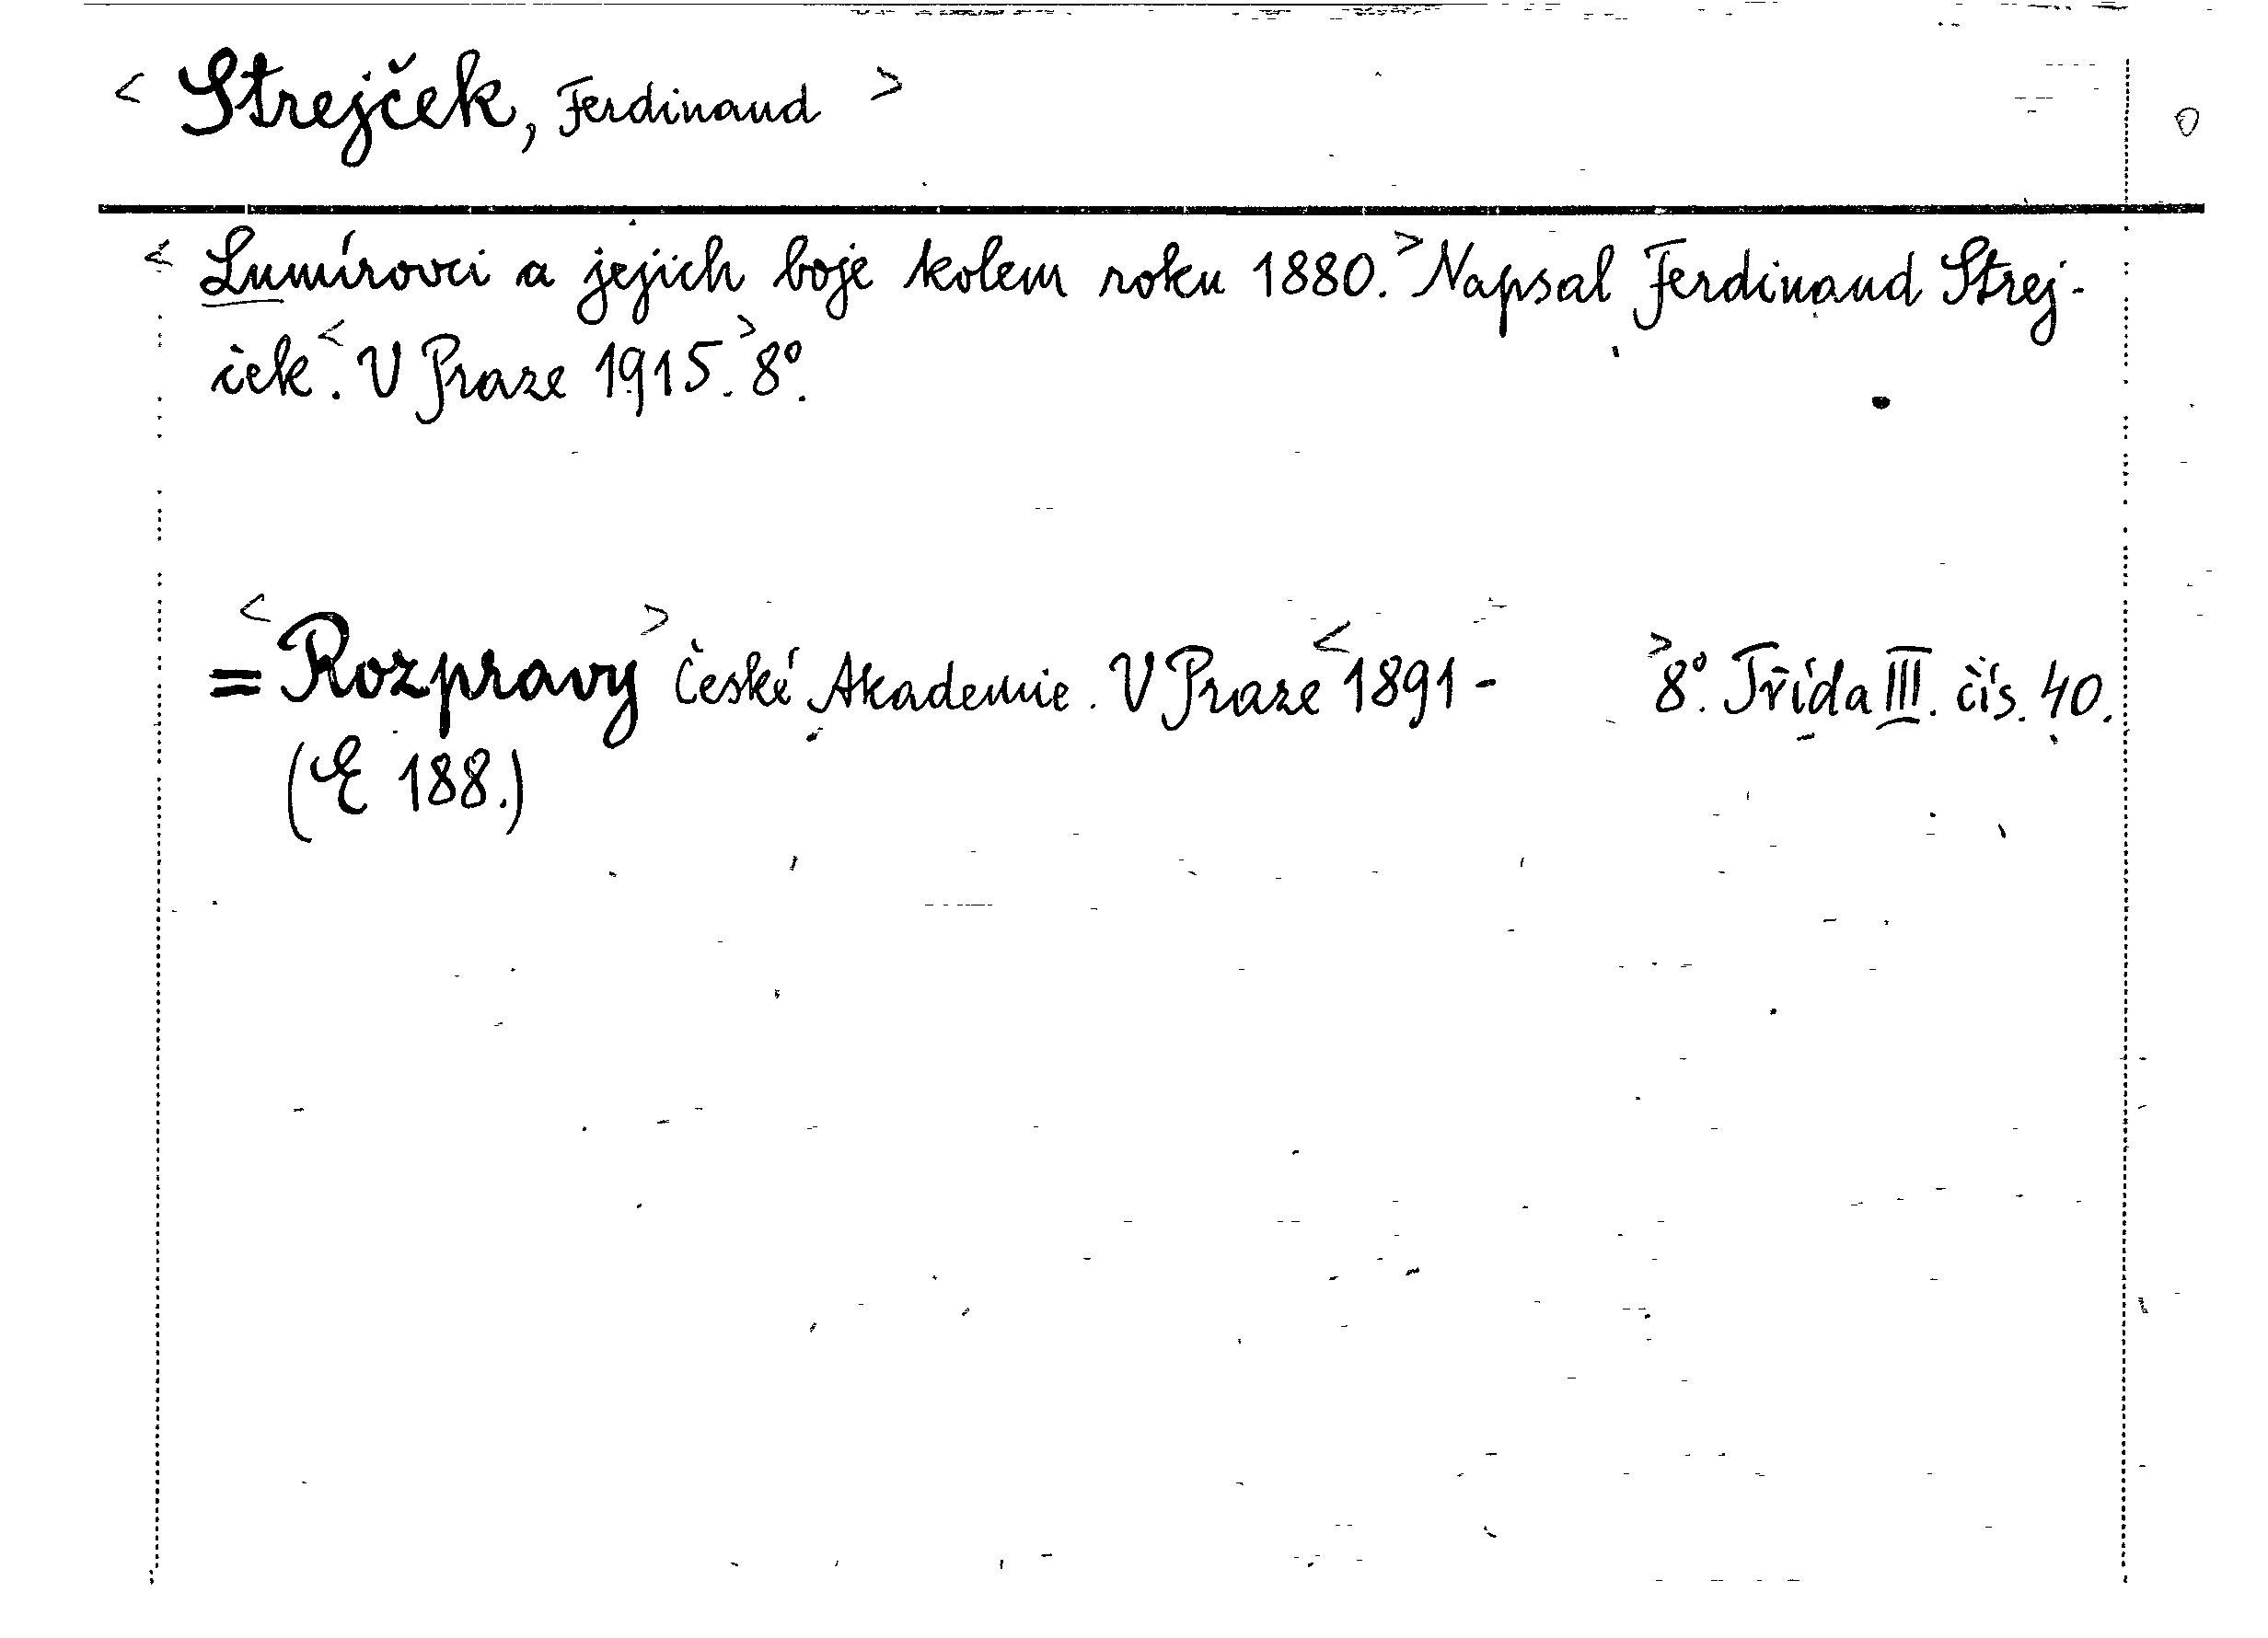 < Strejček, Ferdinand >
< Lumírovci a jejich boje kolem roku 1880. > Napsal Ferdinand Strej-
ček <. V Praze 1915. > 8°.
= < Rozpravy > České Akademie. V Praze < 1891 - > 8°. Třída III. čís. 40.
(E 188.)